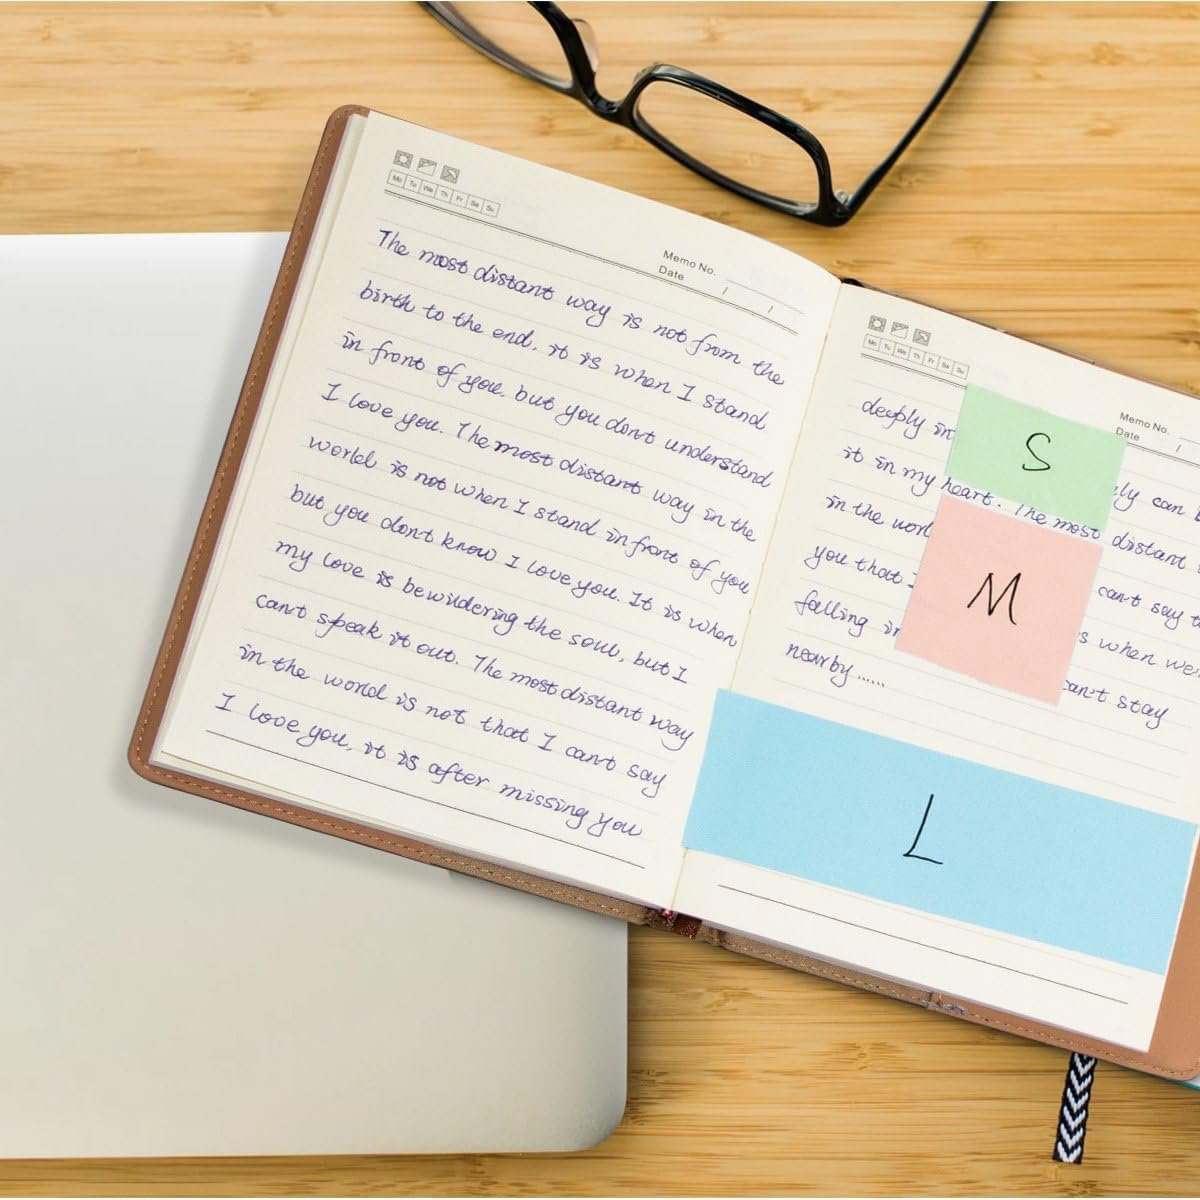 Mo Tu We Th Fr Sa Su
Memo No.
Date / /
The most distant way is not from the
birth to the end. it is when I stand
in front of you. but you don't understand
I love you. The most distant way in the
world is not when I stand in front of you
but you don't know I love you. It is when
my love is bewildering the soul, but I
can't speak it out. The most distant way
in the world is not that I can't say
I love you, it is after missing you
Mo Tu We Th Fr Sa Su
Memo No.
Date /
deeply in
S
it in my heart. The most distant
in the
you that can't say
falling when
M
nearby...... can't stay
L